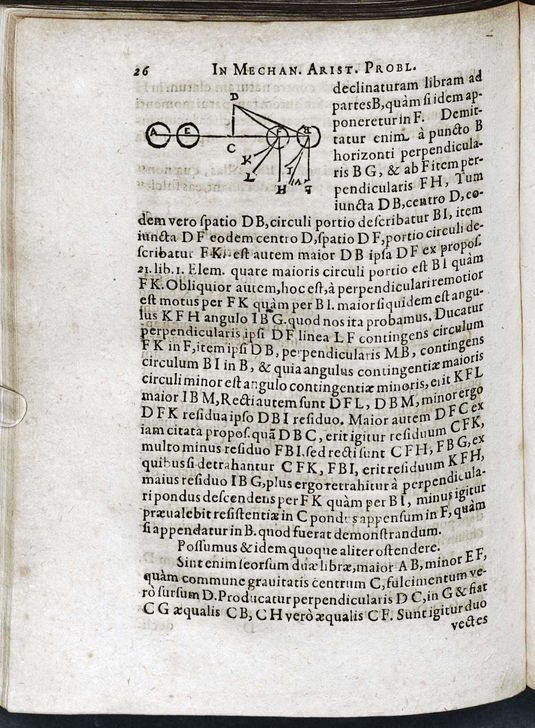 26 IN MECHAN. ARIST. PROBL.
declinaturam libram ad
partes B, quàm si idem ap-
poneretur in F. Demit-
tatur enim à puncto B
horizonti perpendicula-
ris BG, & ab F item per-
pendicularis FH, Tum
iuncta DB, centro D, eo-
D
A E F B
C
K I
L
H M G
dem vero spatio DB, circuli portio describatur BI, item
iuncta DF eodem centro D, spatio DF, portio circuli de-
scribatur FK. est autem maior DB ipsa DF ex propos.
21. lib. 1. Elem. quare maioris circuli portio est BI quàm
FK. Obliquior autem, hoc est, à perpendiculari remotior
est motus per FK quàm per BI. maior siquidem est angu-
lus KFH angulo IBG. quod nos ita probamus. Ducatur
perpendicularis ipsi DF linea LF contingens circulum
FK in F, item ipsi DB, perpendicularis MB, contingens
circulum BI in B, & quia angulus contingentiæ maioris
circuli minor est angulo contingentiæ minoris, erit KFL
maior IBM, Recti autem sunt DFL, DBM, minor ergo
DFK residua ipso DBI residuo. Maior autem DFC ex
iam citata propos. quã DBC, erit igitur residuum CFK,
multo minus residuo FBI. sed recti sunt CFH, FBG, ex
quibus si detrahantur CFK, FBI, erit residuum KFH,
maius residuo IBG, plus ergo retrahitur à perpendicula-
ri pondus descendens per FK quàm per BI, minus igitur
præualebit resistentiæ in C pondus appensum in F, quàm
si appendatur in B. quod fuerat demonstrandum.
Possumus & idem quoque aliter ostendere.
Sint enim seorsum duæ libræ, maior AB, minor EF,
quàm commune grauitatis centrum C, fulcimentum ve-
rò sursum D. Producatur perpendicularis DC, in G & fiat
CG æqualis CB, CH verò æqualis CF. Sunt igitur duo
vectes